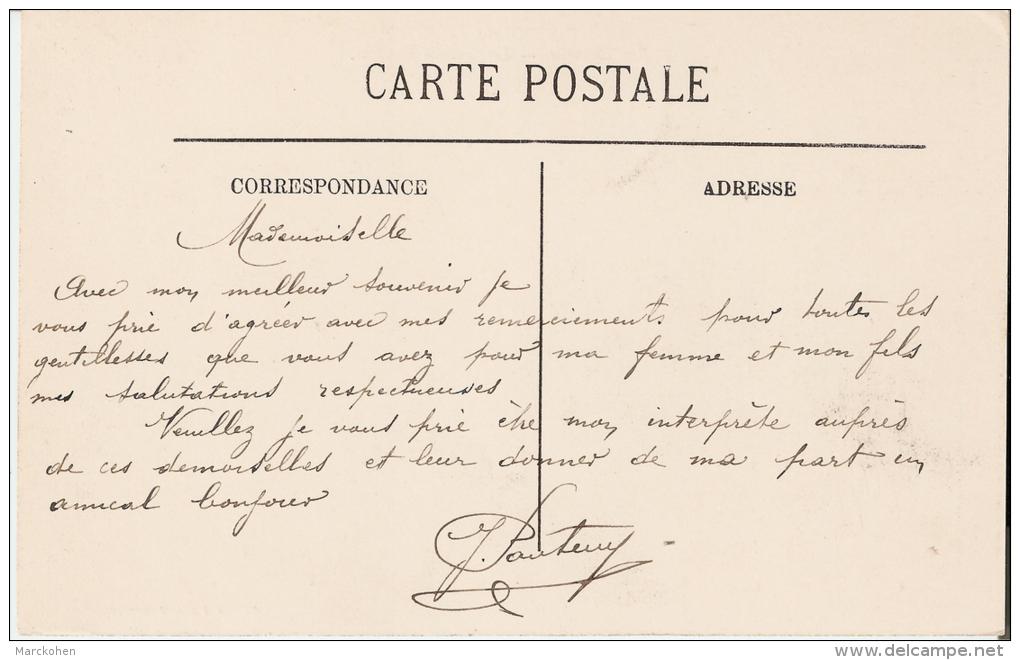 CARTE POSTALE
CORRESPONDANCE
ADRESSE
Mademoiselle
Avec mon meilleur souvenir je
vous prie d'agréer avec mes remerciements pour toutes les
gentillesses que vous avez pour ma femme et mon fils
mes salutations respectueuses
Veuillez je vous prie être mon interprète auprès
de ces demoiselles et leur donner de ma part un
amical bonjour
J.
Marckohen
delcampe.net